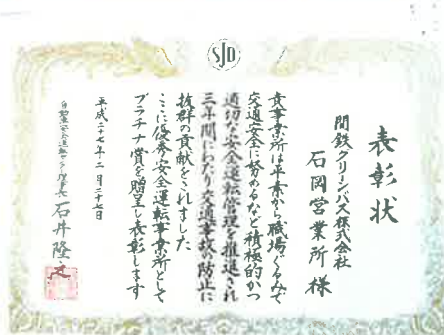 SJD
表彰状
関鉄グリーンバス株式会社
石岡営業所様
貴事業所は平素から職場ぐるみで
交通安全に努めるなど積極的かつ
適切な安全運転管理を推進され
三年間にわたり交通事故の防止に
抜群の貢献をされました
ここに優秀安全運転事業所として
プラチナ賞を贈呈し表彰します
平成二十七年十二月二十七日
自動車安全運転センター理事長 石井隆之